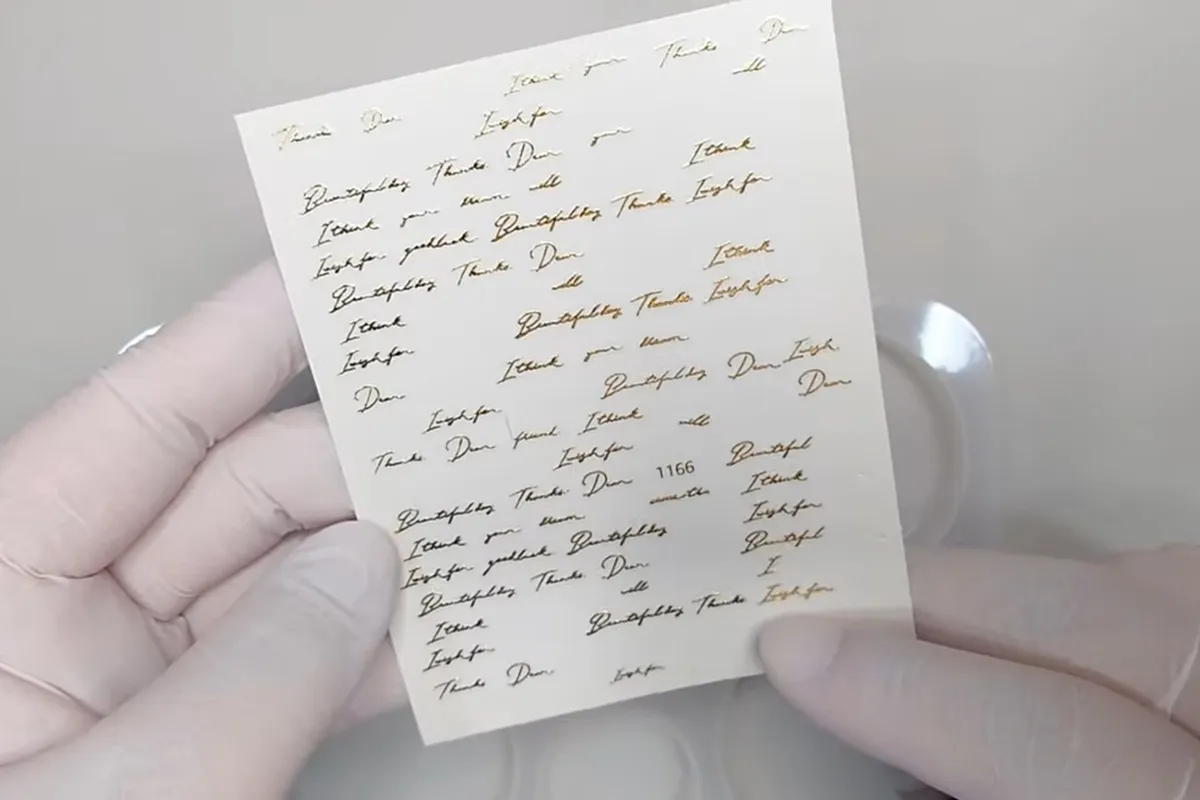 I think your Thanks Dear
Thanks Dear I wish for all
Beautiful day Thanks. Dear your I think
I think your mum all
I wish for goodluck Beautiful day Thanks I wish for
Beautiful day Thanks. Dear I think
I think all Beautiful day Thanks I wish for
I wish for I think your mum
Dear Beautiful day Dear I wish
I wish for Dear
Thanks Dear friend I think all
I wish for
Beautiful day Thanks. Dear 1166 Beautiful
I think your mum I think
I wish for goodluck Beautiful day I wish for
Beautiful day Thanks. Dear Beautiful
I think all I
I wish for Beautiful day Thanks I wish for
Thanks Dear I wish for